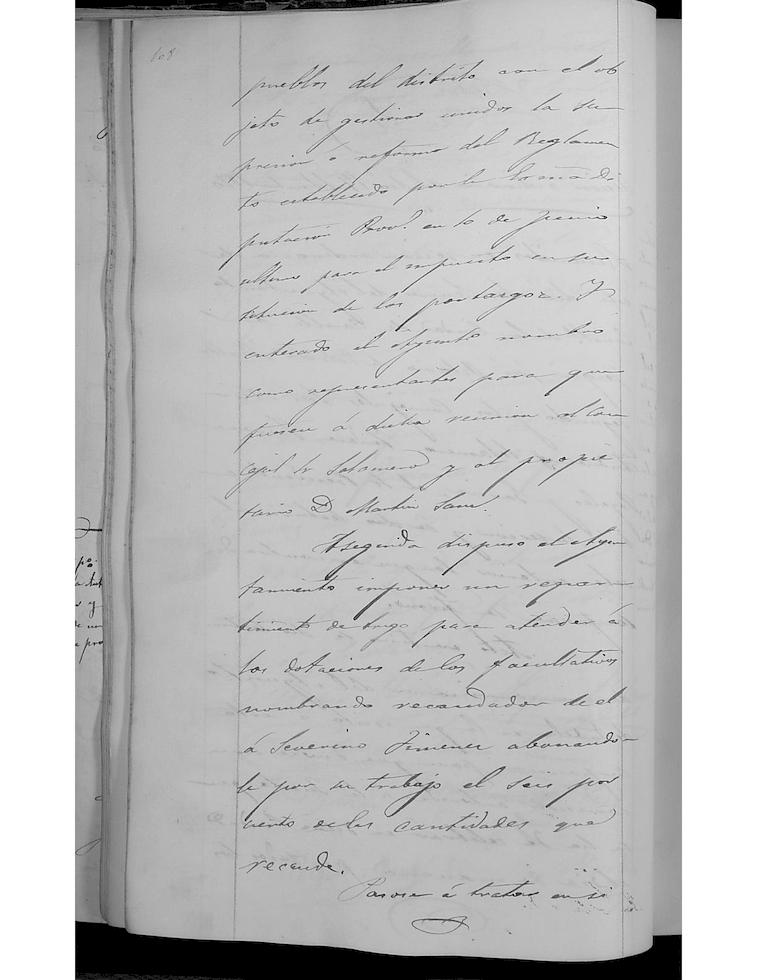 108
pueblos del distrito con el ob
jeto de gestionar unidos la su
presion ó reforma del Reglamen
to establecido por la Exma Di
putacion Prov.l en 10 de Junio
ultimo para el impuesto en sus
titucion de los portazgos. Y
enterado el Ayunto nombró
como representantes para que
fuesen á dicha reunion al con
cejal Sr Salamero y al propie
tario D Martin Sanz.
Aseguida dispuso el Ayun
tamiento imponer un repar
timiento de trigo para atender á
las dotaciones de los facultativos
nombrando recaudador de el
á Severino Jimenez abonando
le por su trabajo el seis por
ciento de las cantidades que
recaude.
Pasose á tratar en si